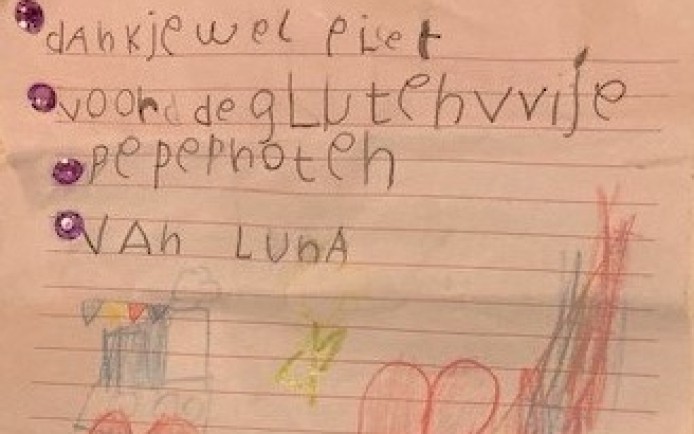 dankjewel piet
voor de glutenvvrije
pepernoten
van Luna